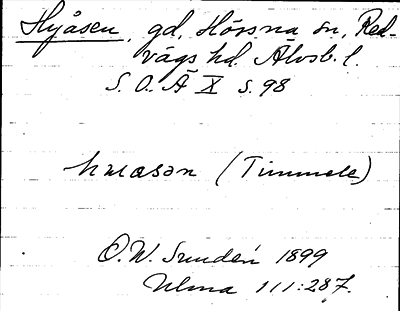 Hyåsen, gd, Hössna sn, Red-
vägs hd. Älvsb. l.
S. O. Ä X s. 98
hwasən (Timmele)
O.W. Sundén 1899
Ulma 111:287.